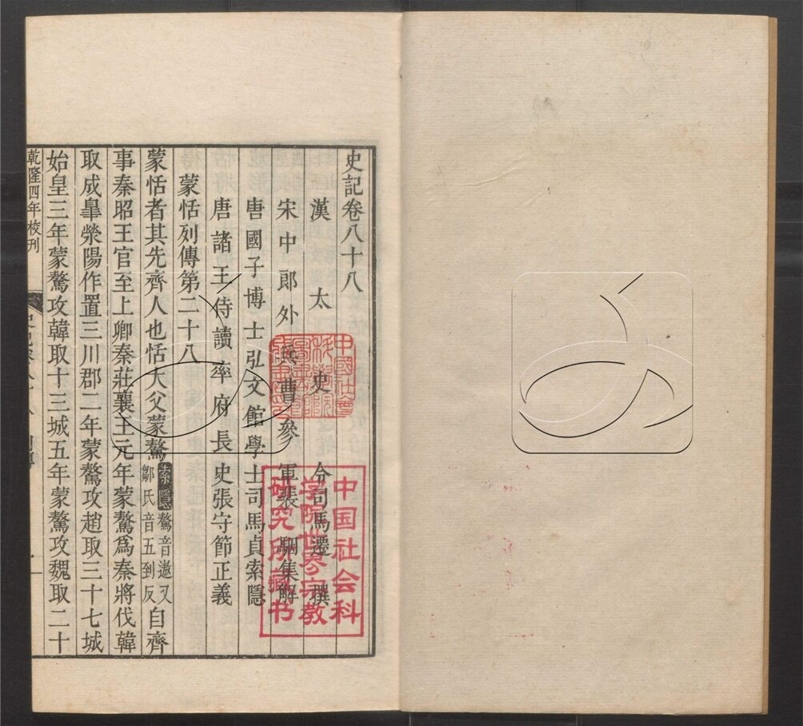 史記卷八十八
漢太史令司馬遷撰
宋中郎外兵曹參軍裴駰集解
唐國子博士弘文館學士司馬貞索隱
唐諸王侍讀率府長史張守節正義
蒙恬列傳第二十八
蒙恬者其先齊人也恬大父蒙驁
索隱驁音遨又
鄒氏音五到反
自齊
事秦昭王官至上卿秦莊襄王元年蒙驁爲秦將伐韓
取成臯滎陽作置三川郡二年蒙驁攻趙取三十七城
始皇三年蒙驁攻韓取十三城五年蒙驁攻魏取二十
乾隆四年校刊
中国社会科
学院世界宗教
研究所藏书